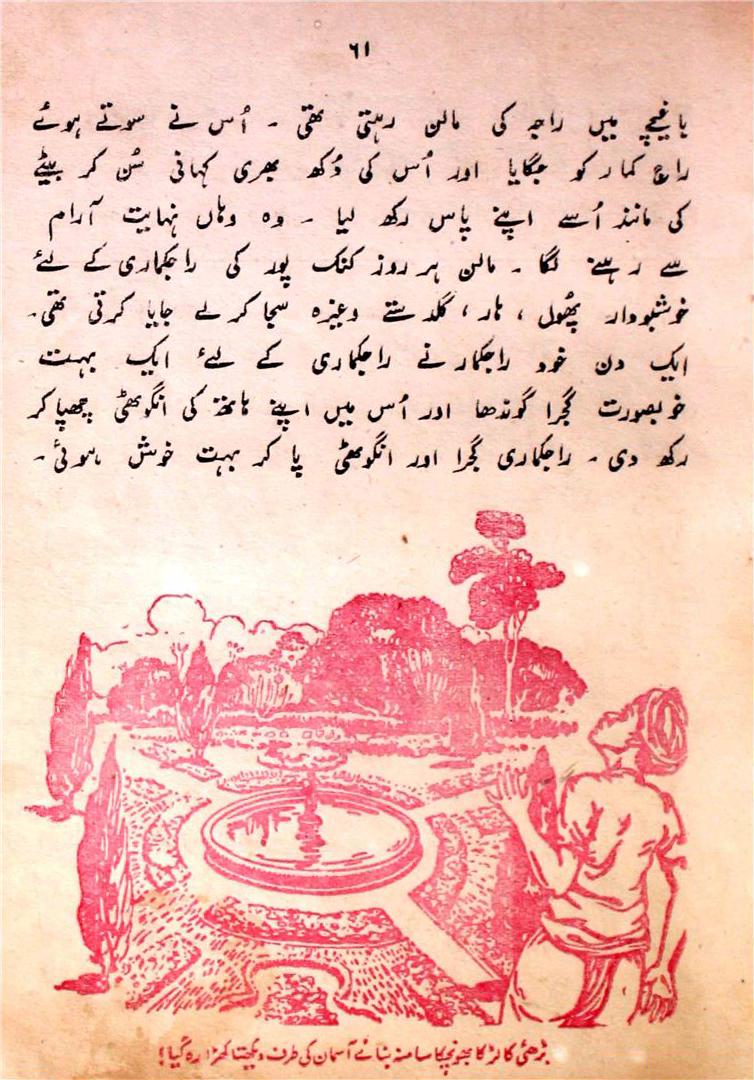 ۶۱
باغیچے میں راجہ کی مالن رہتی تھی ۔ اُس نے سوتے ہوئے
راج کمار کو جگایا اور اُس کی دُکھ بھری کہانی سُن کر بیٹے
کی مانند اُسے اپنے پاس رکھ لیا ۔ وہ وہاں نہایت آرام
سے رہنے لگا ۔ مالن ہر روز کنک پور کی راجکماری کے لئے
خوشبودار پھُول ، ہار ، گلدستے وغیرہ سجا کر لے جایا کرتی تھی۔
ایک دن خود راجکمار نے راجکماری کے لیۓ ایک بہت
خوبصورت گجرا گوندھا اور اُس میں اپنے ہاتھ کی انگوٹھی چھپا کر
رکھ دی ۔ راجکماری گجرا اور انگوٹھی پا کر بہت خوش ہوئی ۔
بڑھئی کا لڑکا بھونچکا سا منہ بنائے آسمان کی طرف دیکھتا کھڑا رہ گیا !